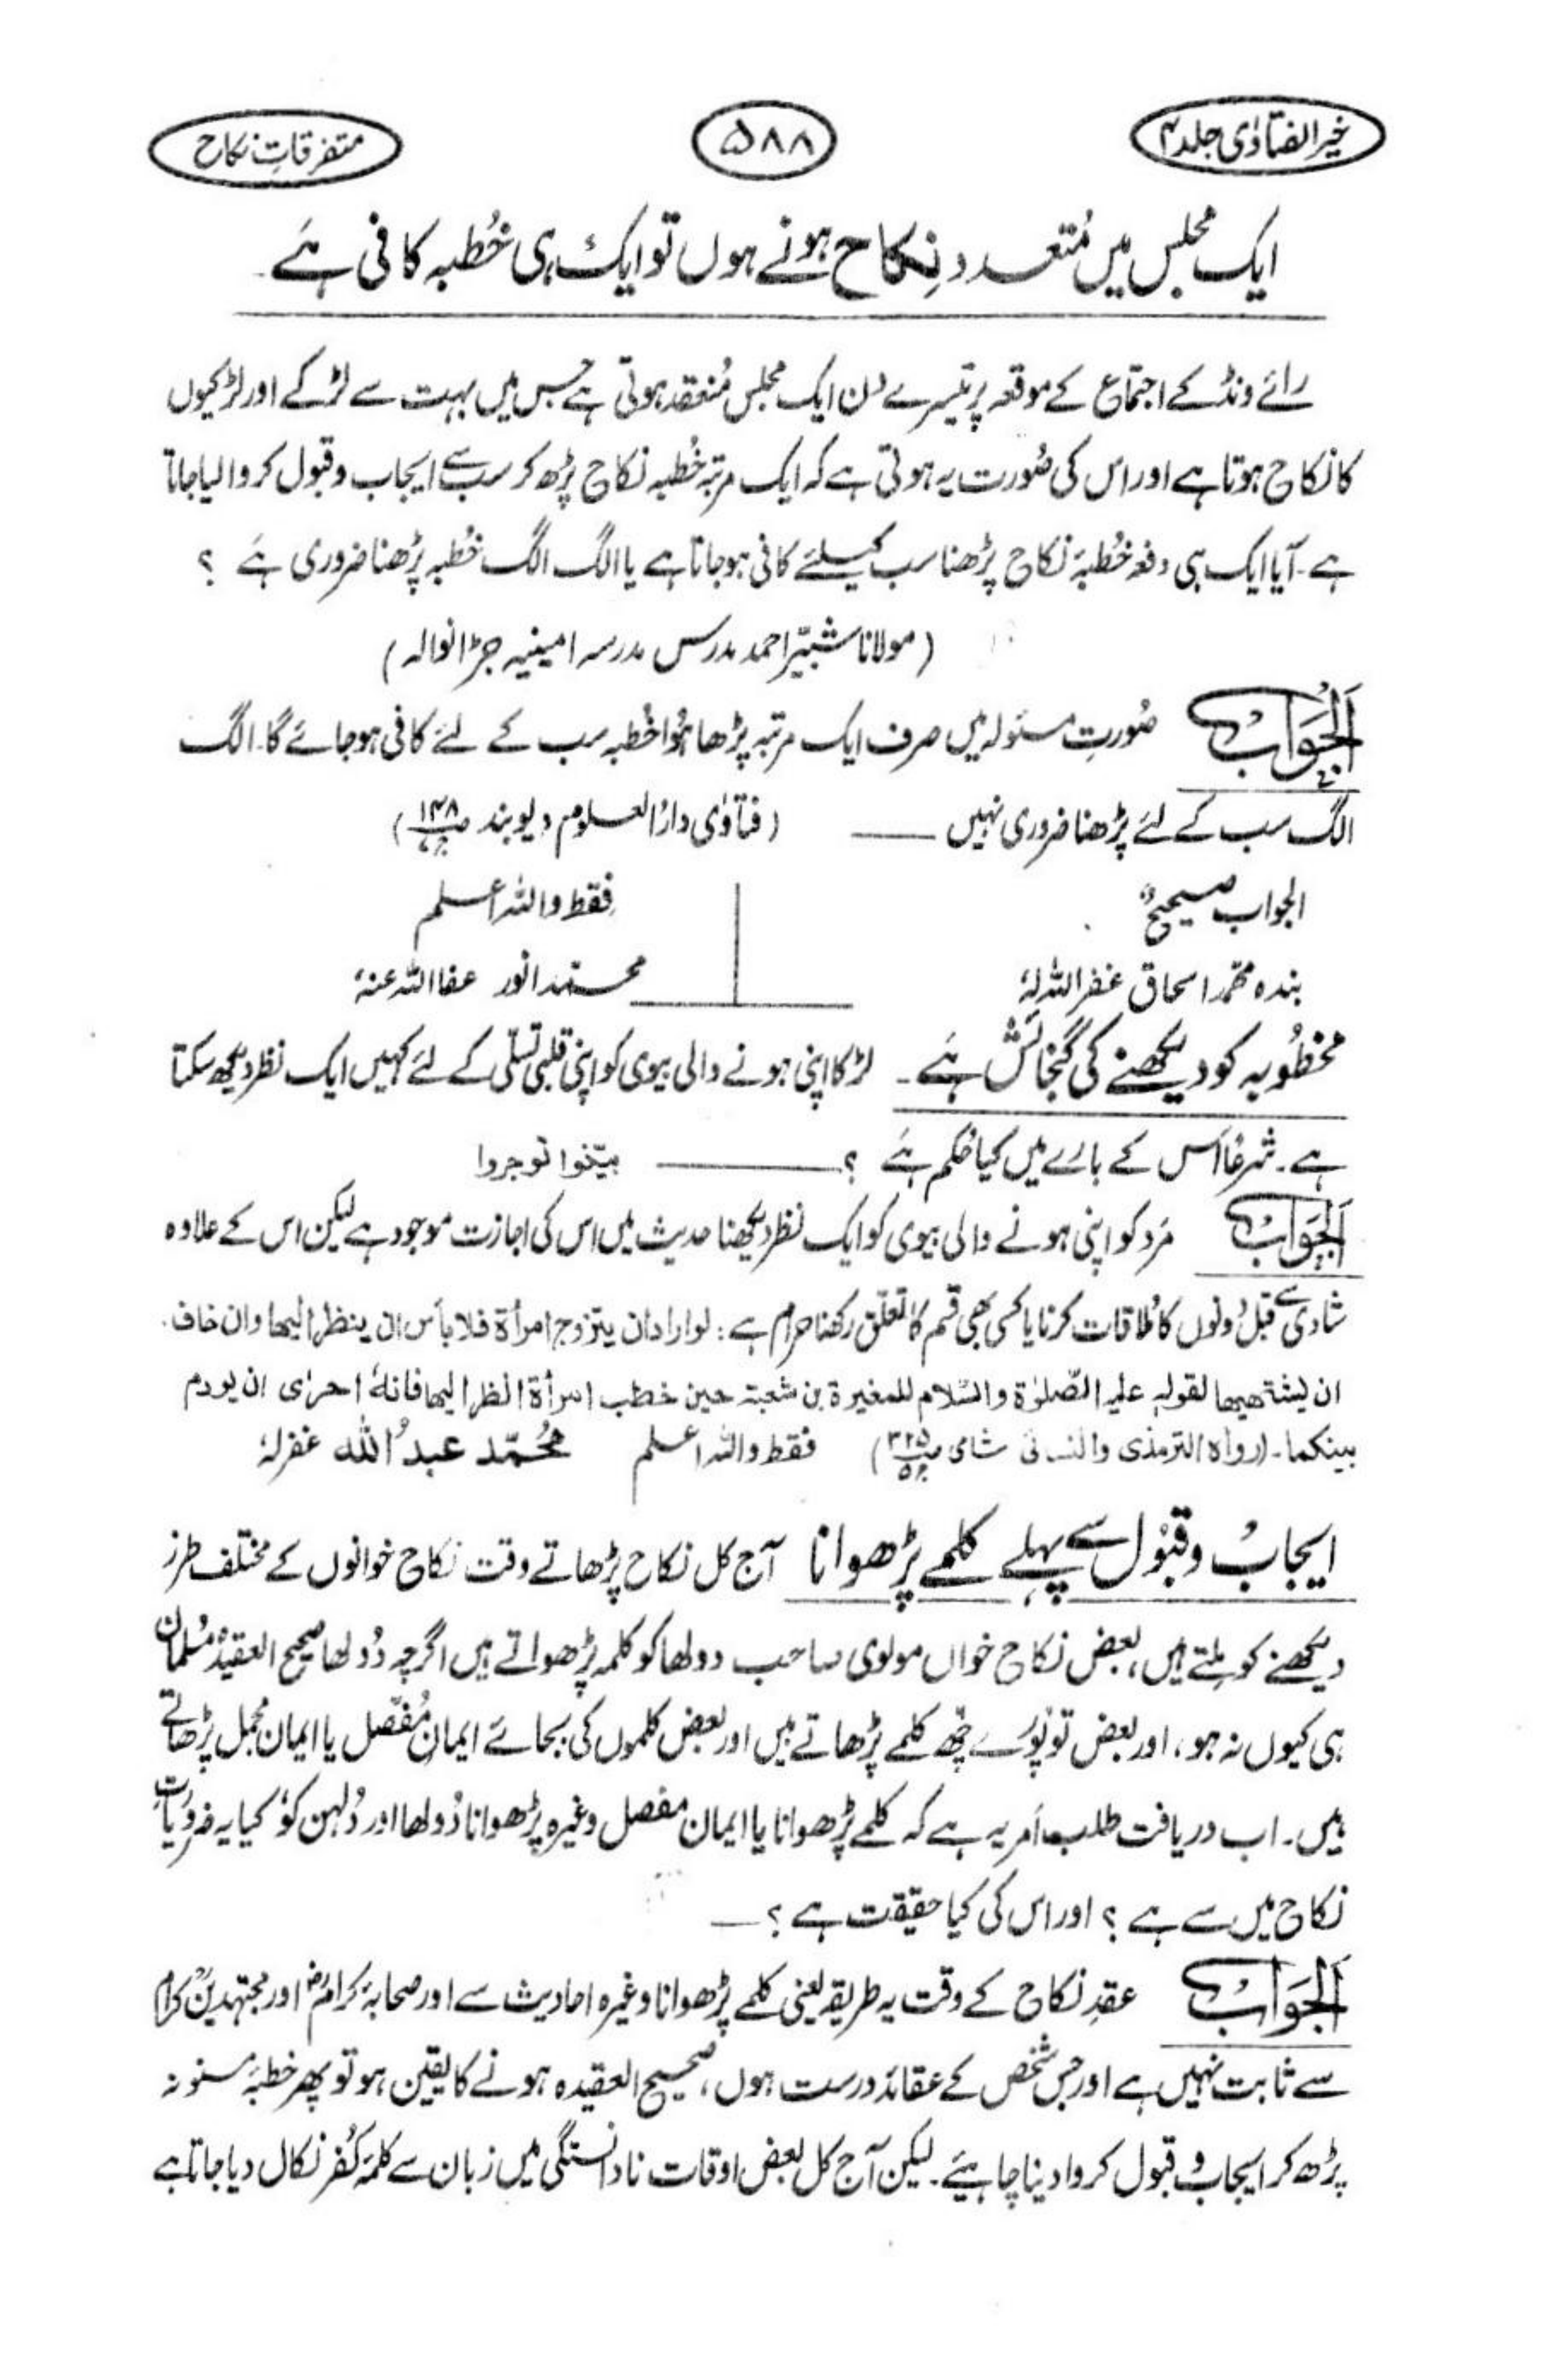 خیر الفتاوٰی جلد ۴
۵۸۸
متفرقاتِ نکاح
ایک مجلس میں مُتعدد نِکاح ہونے ہوں تو ایک ہی خُطبہ کافی ہَے
رائے ونڈ کے اجتماع کے موقعہ پر تیسرے دن ایک مجلس مُنعقد ہوتی ہے جس میں بہت سے لڑکے اور لڑکیوں
کا نکاح ہوتا ہے اور اس کی صُورت یہ ہوتی ہے کہ ایک مرتبہ خُطبہ نکاح پڑھ کر سب سے ایجاب و قبول کروا لیا جاتا
ہے۔ آیا ایک ہی دفعہ خُطبۂ نکاح پڑھنا سب کیلئے کافی ہو جاتا ہے یا الگ الگ خُطبہ پڑھنا ضروری ہَے ؟
(مولانا شبیّر احمد مدرس مدرسہ امینیہ جڑانوالہ)
اَلجَوَابُ صُورتِ مسئولہ میں صرف ایک مرتبہ پڑھا ہُوا خُطبہ سب کے لئے کافی ہو جائے گا۔ الگ
الگ سب کے لئے پڑھنا ضروری نہیں ـــــ (فتاوٰی دارُ العلوم دیوبند ص۱۴۸)
الجواب صحیحٌ
فقط واللہ اعلم
بندہ محمّد اسحاق غفر اللہ لہٗ
محمّد انور عفا اللہ عنہٗ
مخطُوبہ کو دیکھنے کی گنجائش ہَے۔ لڑکا اپنی ہونے والی بیوی کو اپنی قلبی تسلّی کے لئے کہیں ایک نظر دیکھ سکتا
ہے۔ شرعًا اس کے بارے میں کیا حُکم ہَے ؟ ـــــ بیّنوا توجروا
اَلجَوَابُ مَرد کو اپنی ہونے والی بیوی کو ایک نظر دیکھنا حدیث میں اس کی اجازت موجود ہے لیکن اس کے علاوہ
شادی سے قبل دونوں کا مُلاقات کرنا یا کسی بھی قسم کا تعلّق رکھنا حرام ہے : لو اراد ان یتزوج امرأة فلا بأس ان ینظر الیھا وان خاف
ان یشتھیھا لقولہٖ علیہ الصّلوٰۃ والسّلام للمغیرۃ بن شعبۃ حین خطب امرأۃ انظر الیھا فانہٗ احرٰی ان یودم
بینکما۔ (رواہ الترمذی والنسائی شامی ص۳۲۵ ج۵) فقط واللہ اعلم مُحمّد عبدُ اللہ غفرلہٗ
ایجابُ و قبُول سے پہلے کلمے پڑھوانا آج کل نکاح پڑھاتے وقت نکاح خوانوں کے مختلف طرز
دیکھنے کو مِلتے ہیں، بعض نکاح خواں مولوی صاحب دولھا کو کلمہ پڑھواتے ہیں اگرچہ دُولھا صحیح العقیدہ مُسلمان
ہی کیوں نہ ہو، اور بعض تو پُورے چھ کلمے پڑھاتے ہیں اور بعض کلموں کی بجائے ایمان مُفصّل یا ایمان مجمل پڑھاتے
ہیں۔ اب دریافت طلب اَمر یہ ہے کہ کلمے پڑھوانا یا ایمان مفصل وغیرہ پڑھوانا دُولھا اور دُلہن کو، کیا یہ ضروریاتِ
نکاح میں سے ہے ؟ اور اس کی کیا حقیقت ہے ؟ ـــ
اَلجَوَابُ عقدِ نکاح کے وقت یہ طریقہ یعنی کلمے پڑھوانا وغیرہ احادیث سے اور صحابہ کرامؓ اور مجتہدینِ کرام
سے ثابت نہیں ہے اور جس شخص کے عقائد درست ہوں، صحیح العقیدہ ہونے کا یقین ہو تو پھر خطبۂ مسنونہ
پڑھ کر ایجاب و قبول کروا دینا چاہیئے۔ لیکن آج کل بعض اوقات نادانستگی میں زبان سے کلمۂ کُفر نکال دیا جاتا ہے